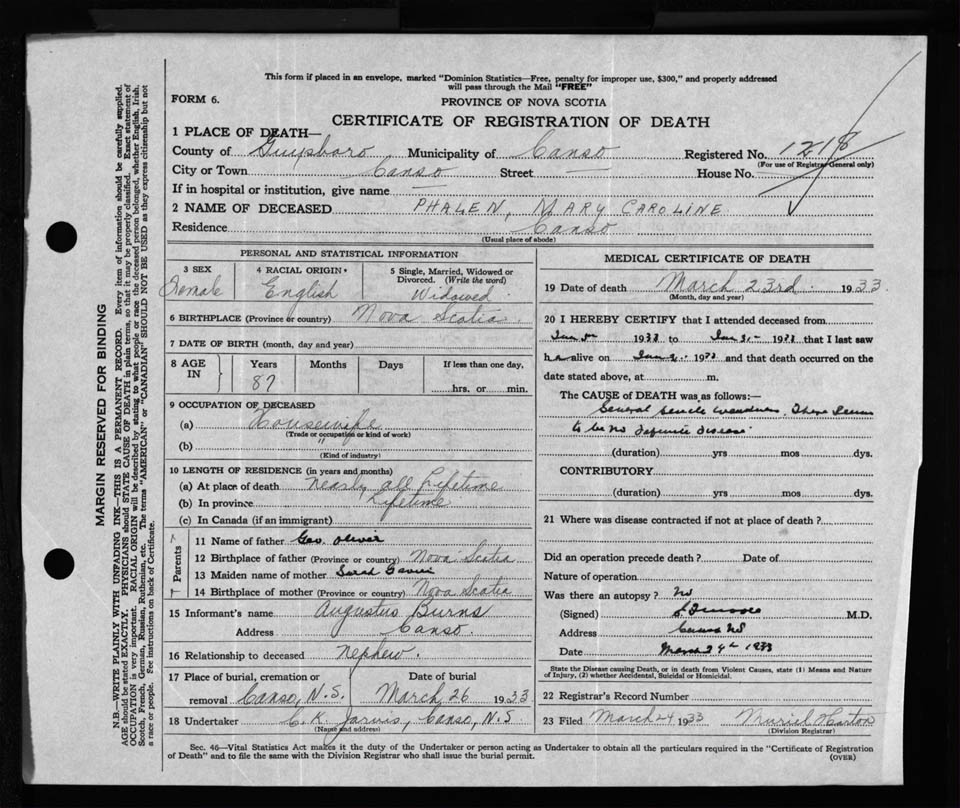 This form if placed in an envelope, marked "Dominion Statistics—Free, penalty for improper use, $300," and properly addressed
will pass through the Mail "FREE"
FORM 6.
PROVINCE OF NOVA SCOTIA
CERTIFICATE OF REGISTRATION OF DEATH
1 PLACE OF DEATH—
County of Guysboro Municipality of Canso Registered No. 1218
(For use of Registrar General only)
City or Town Canso Street — House No.
If in hospital or institution, give name —
2 NAME OF DECEASED PHALEN, MARY CAROLINE
Residence Canso
(Usual place of abode)
PERSONAL AND STATISTICAL INFORMATION
3 SEX Female
4 RACIAL ORIGIN* English
5 Single, Married, Widowed or Divorced. (Write the word) Widowed
6 BIRTHPLACE (Province or country) Nova Scotia
7 DATE OF BIRTH (month, day and year)
8 AGE IN Years 87 Months Days If less than one day, hrs. or min.
9 OCCUPATION OF DECEASED
(a) Housewife
(Trade or occupation or kind of work)
(b) "
(Kind of industry)
10 LENGTH OF RESIDENCE (in years and months)
(a) At place of death Nearly all Lifetime
(b) In province Lifetime
(c) In Canada (if an immigrant)
Parents
11 Name of father Geo. Oliver
12 Birthplace of father (Province or country) Nova Scotia
13 Maiden name of mother Sarah
14 Birthplace of mother (Province or country) Nova Scotia
15 Informant's name Augustus Burns
Address Canso.
16 Relationship to deceased Nephew.
17 Place of burial, cremation or removal Canso, N.S. Date of burial March 26 1933
18 Undertaker C. K. Jarvis, Canso, N.S
(Name and address)
MEDICAL CERTIFICATE OF DEATH
19 Date of death March 23rd. 1933.
(Month, day and year)
20 I HEREBY CERTIFY that I attended deceased from
Jan 1933 to Jan 1933 that I last saw
h alive on Jan 1933 and that death occurred on the
date stated above, at m.
The CAUSE of DEATH was as follows:—
General senile weakness. There seems
to be no definite disease
(duration) yrs mos dys.
CONTRIBUTORY
(duration) yrs mos dys.
21 Where was disease contracted if not at place of death?
Did an operation precede death? Date of
Nature of operation
Was there an autopsy? No
(Signed) M.D.
Address Canso NS
Date March 24th 1933
State the Disease causing Death, or in death from Violent Causes, state (1) Means and Nature
of Injury, (2) whether Accidental, Suicidal or Homicidal.
22 Registrar's Record Number
23 Filed March 24 1933 Muriel
(Division Registrar)
Sec. 46—Vital Statistics Act makes it the duty of the Undertaker or person acting as Undertaker to obtain all the particulars required in the "Certificate of Registration
of Death" and to file the same with the Division Registrar who shall issue the burial permit.
(OVER)
MARGIN RESERVED FOR BINDING
N.B.—WRITE PLAINLY WITH UNFADING INK—THIS IS A PERMANENT RECORD. Every item of information should be carefully supplied.
AGE should be stated EXACTLY. PHYSICIANS should STATE CAUSE OF DEATH in plain terms, so that it may be properly classified. Exact statement of
OCCUPATION is very important. RACIAL ORIGIN will be described by stating to what people or race the deceased person belonged, whether English, Irish,
Scotch, French, German, Russian, Ruthenian, etc. The terms "AMERICAN" or "CANADIAN" SHOULD NOT BE USED as they express citizenship but not
a race or people. See instructions on back of Certificate.